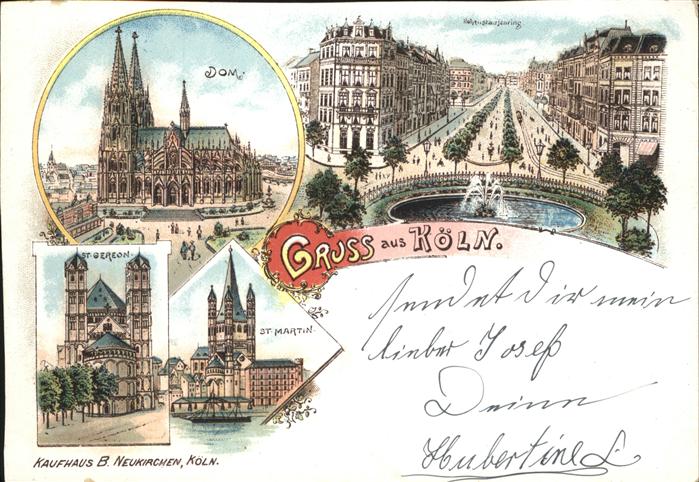 DOM.
Hohenstaufenring
ST. GEREON.
ST. MARTIN.
GRUSS AUS KÖLN.
sendet Dir mein
lieber Josef
Deine
Hubertine L
KAUFHAUS B. NEUKIRCHEN, KÖLN.